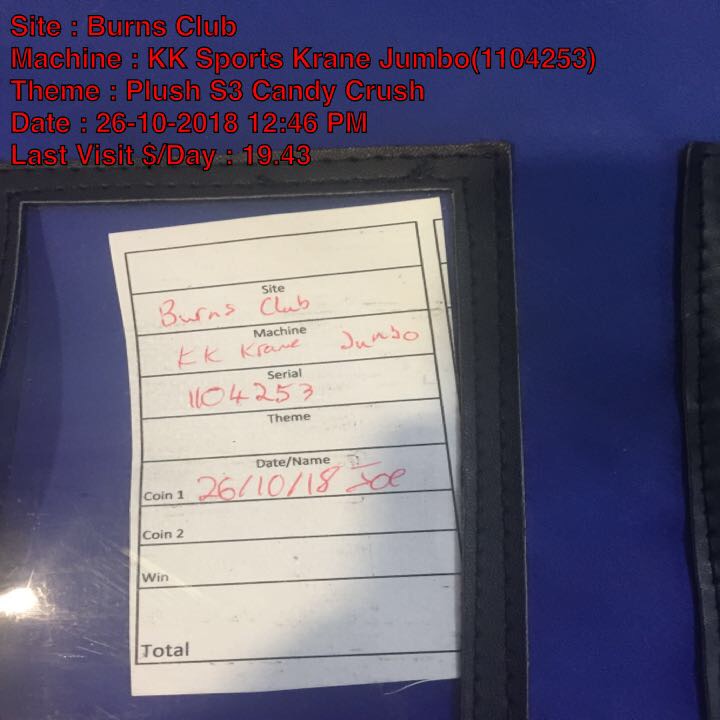 Site : Burns Club
Machine : KK Sports Krane Jumbo(1104253)
Theme : Plush S3 Candy Crush
Date : 26-10-2018 12:46 PM
Last Visit $/Day : 19.43
Site
Burns Club
Machine
KK Krane Jumbo
Serial
1104253
Theme
Date/Name
Coin 1 26/10/18 Joe
Coin 2
Win
Total